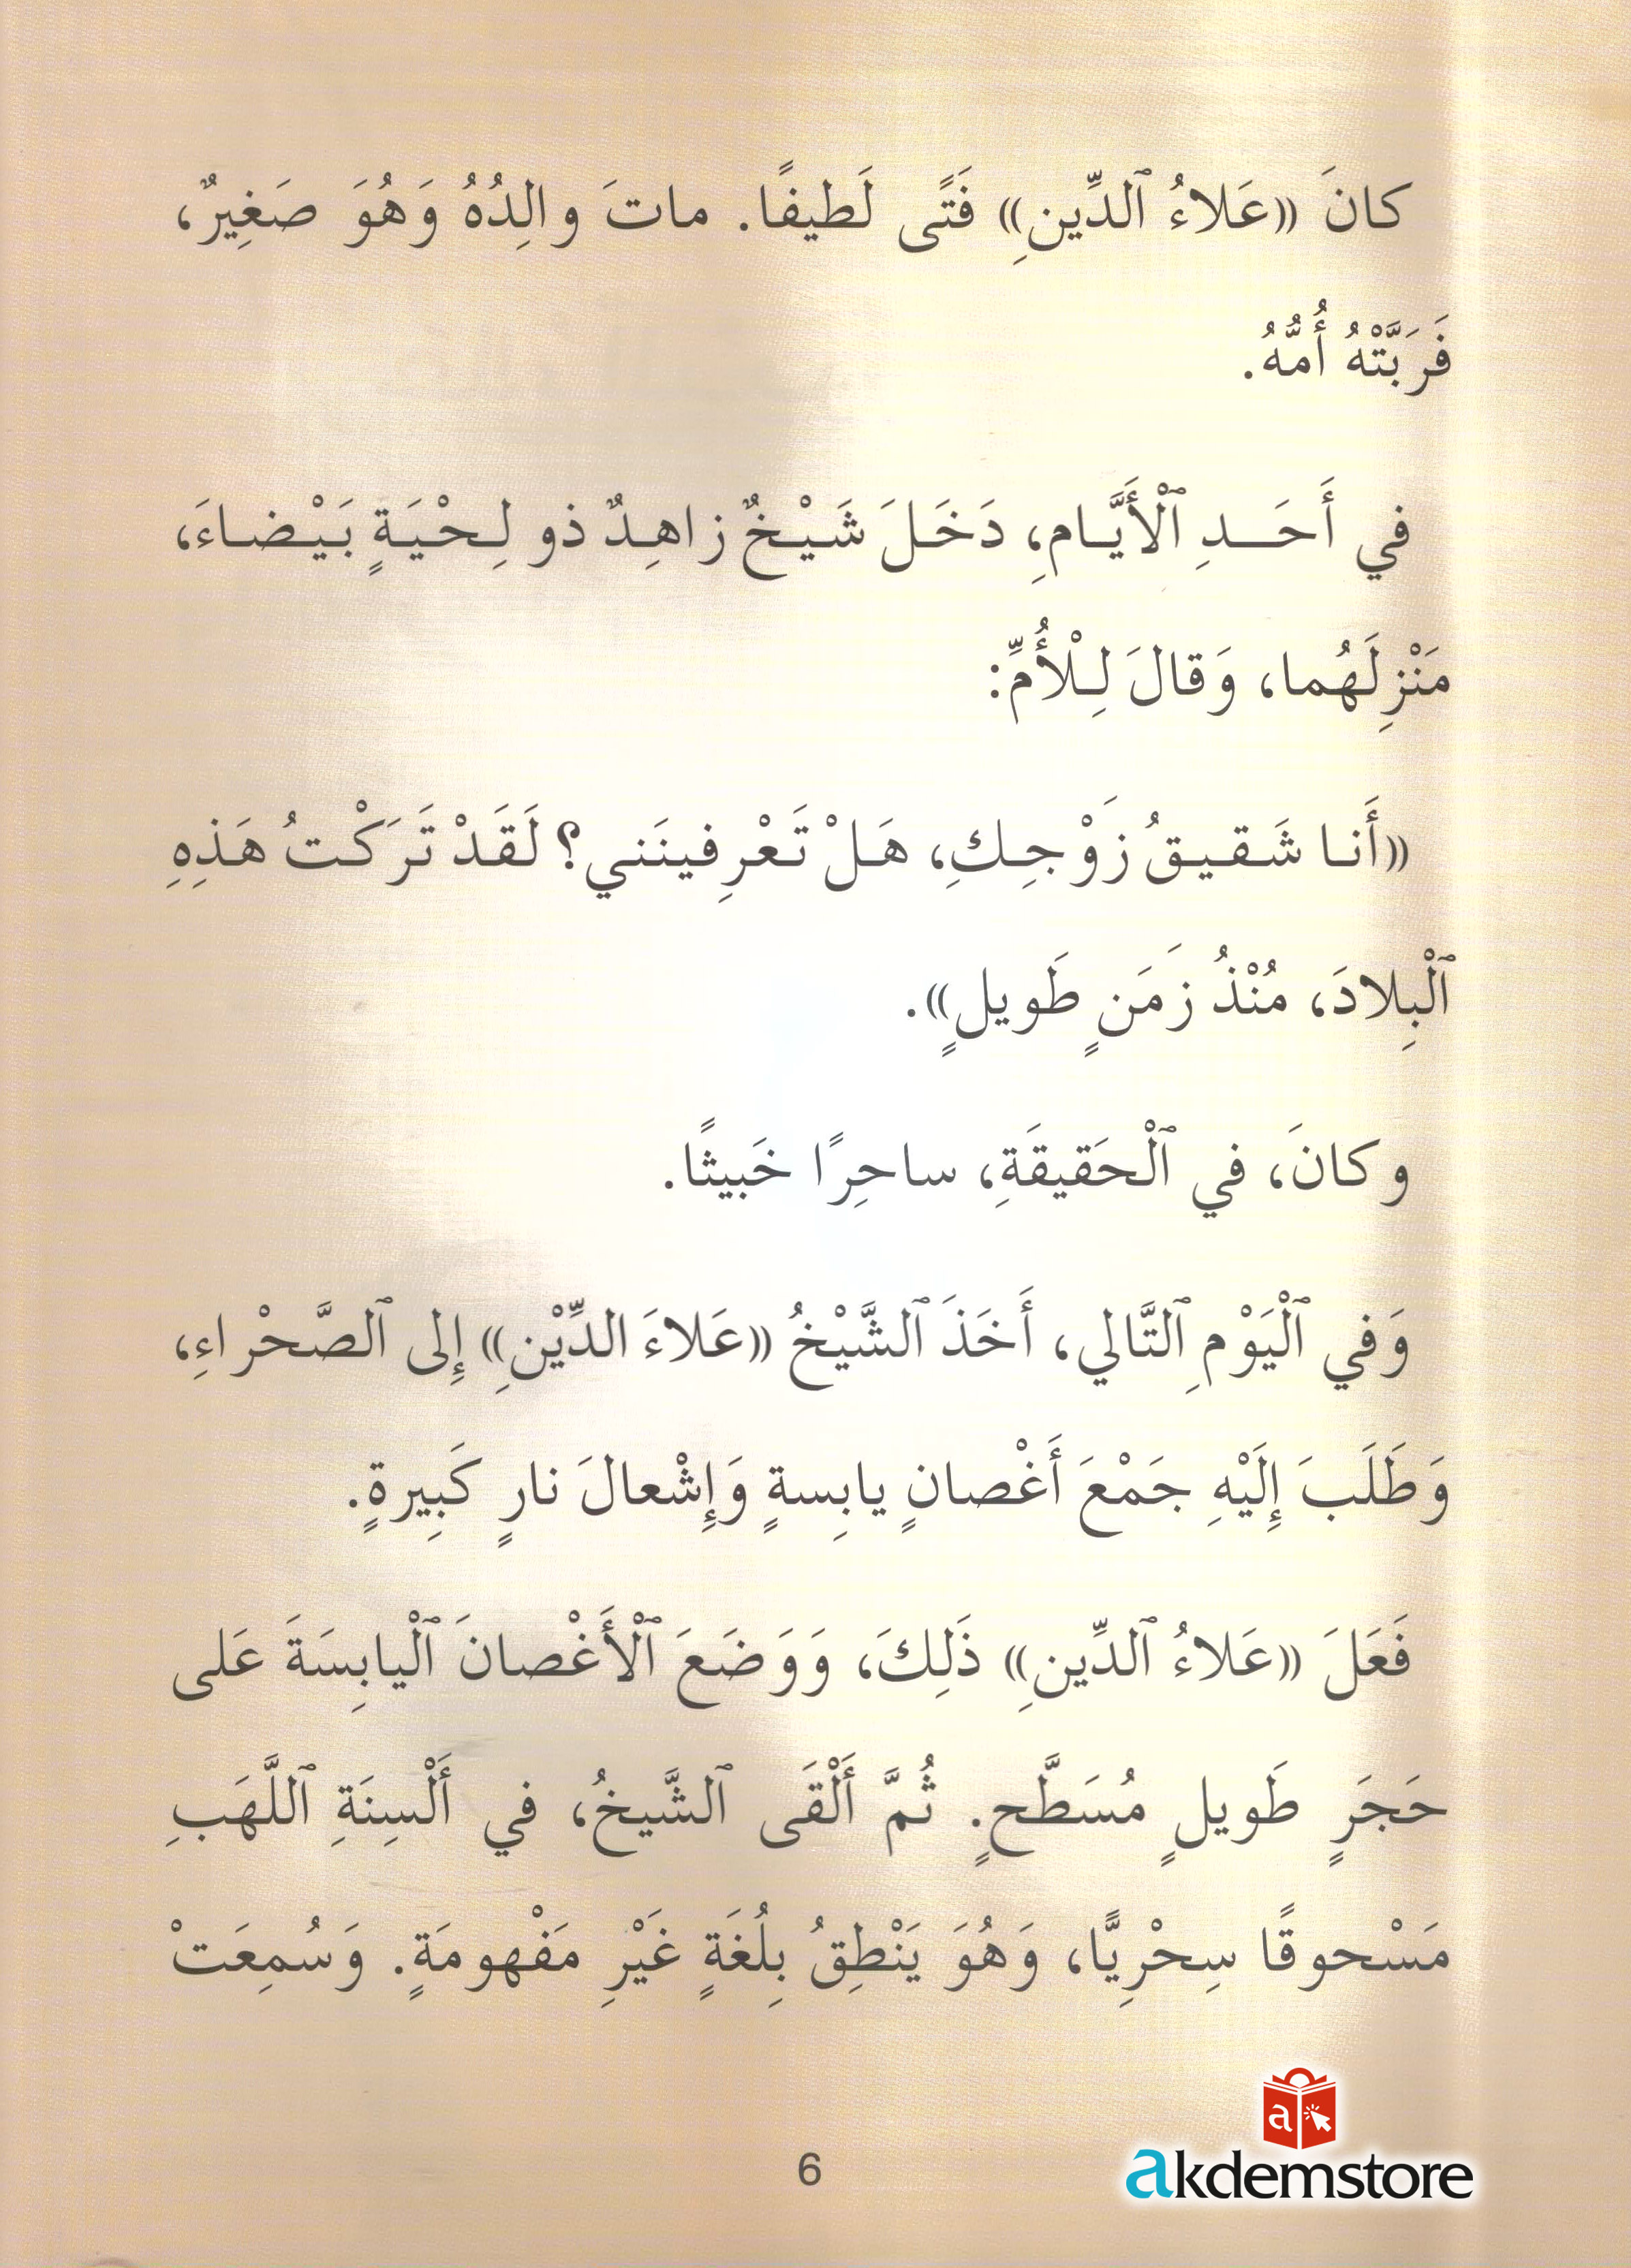 كانَ «عَلاءُ ٱلدِّينِ» فَتًى لَطيفًا. ماتَ والِدُهُ وَهُوَ صَغِيرٌ،
فَرَبَّتْهُ أُمُّهُ.
في أَحَدِ ٱلْأَيَّامِ، دَخَلَ شَيْخٌ زاهِدٌ ذو لِحْيَةٍ بَيْضاءَ،
مَنْزِلَهُما، وَقالَ لِلْأُمِّ:
«أَنا شَقيقُ زَوْجِكِ، هَلْ تَعْرِفينَني؟ لَقَدْ تَرَكْتُ هَذِهِ
ٱلْبِلادَ، مُنْذُ زَمَنٍ طَويلٍ».
وكانَ، في ٱلْحَقيقَةِ، ساحِرًا خَبيثًا.
وَفي ٱلْيَوْمِ ٱلتَّالي، أَخَذَ ٱلشَّيْخُ «عَلاءَ الدِّيْنِ» إِلى ٱلصَّحْراءِ،
وَطَلَبَ إِلَيْهِ جَمْعَ أَغْصانٍ يابِسةٍ وَإِشْعالَ نارٍ كَبِيرةٍ.
فَعَلَ «عَلاءُ ٱلدِّينِ» ذَلِكَ، وَوَضَعَ ٱلْأَغْصانَ ٱلْيابِسَةَ عَلى
حَجَرٍ طَويلٍ مُسَطَّحٍ. ثُمَّ أَلْقَى ٱلشَّيخُ، في أَلْسِنَةِ ٱللَّهَبِ
مَسْحوقًا سِحْرِيًّا، وَهُوَ يَنْطِقُ بِلُغَةٍ غَيْرِ مَفْهومَةٍ. وَسُمِعَتْ
6
a
akdemstore